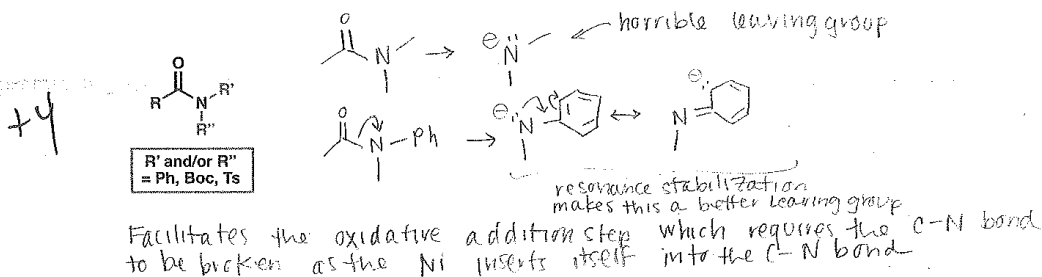 horrible leaving group
O
N
⊖ N
+4
O
R
N
R'
R"
R' and/or R"
= Ph, Boc, Ts
O
N-Ph
⊖ N
⊖
N
resonance stabilization
makes this a better leaving group
Facilitates the oxidative addition step which requires the C-N bond
to be broken as the Ni inserts itself into the C-N bond